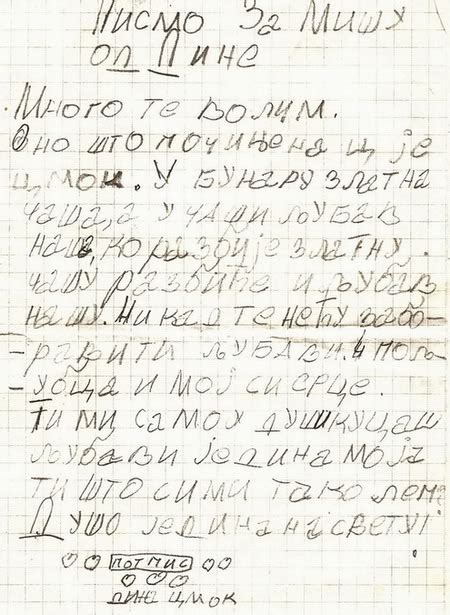 Писмо За Мишу
од Дине
Много те волим.
Оно што почиње на ц је
цмок. У бунару златна
чаша, а у чаши љубав
наша, ко разбије златну
чашу разбиће и љубав
нашу. Никад те нећу забо-
-равити љубави. 4 пољ-
-убца и мој си срце.
Ти ми само у души куцаш
љубави једина моја
ти што си ми тако лепа
Душо једина на свету!
потпис
дина цмок